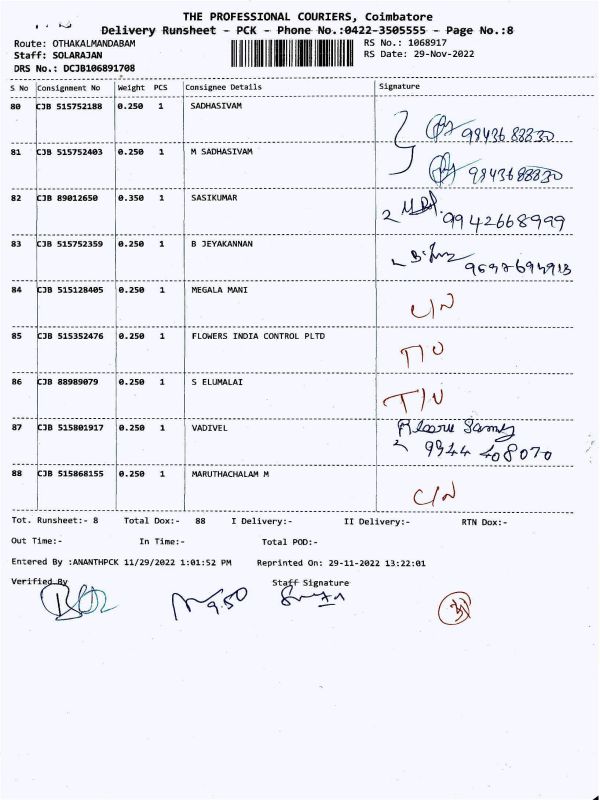 THE PROFESSIONAL COURIERS, Coimbatore
Delivery Runsheet - PCK - Phone No.:0422-3505555 - Page No.:8
Route: OTHAKALMANDABAM
RS No.: 1068917
Staff: SOLARAJAN
RS Date: 29-Nov-2022
DRS No.: DCJB106891708
S No Consignment No Weight PCS Consignee Details Signature
80 CJB 515752188 0.250 1 SADHASIVAM 9943688830
81 CJB 515752403 0.250 1 M SADHASIVAM 9943688830
82 CJB 89012650 0.350 1 SASIKUMAR 9942668999
83 CJB 515752359 0.250 1 B JEYAKANNAN
84 CJB 515128405 0.250 1 MEGALA MANI C/N
85 CJB 515352476 0.250 1 FLOWERS INDIA CONTROL PLTD T/U
86 CJB 88989079 0.250 1 S ELUMALAI T/U
87 CJB 515801917 0.250 1 VADIVEL Samy
9944 408070
88 CJB 515868155 0.250 1 MARUTHACHALAM M C/N
Tot. Runsheet:- 8 Total Dox:- 88 I Delivery:- II Delivery:- RTN Dox:-
Out Time:- In Time:- Total POD:-
Entered By :ANANTHPCK 11/29/2022 1:01:52 PM Reprinted On: 29-11-2022 13:22:01
Verified By Staff Signature
9.50